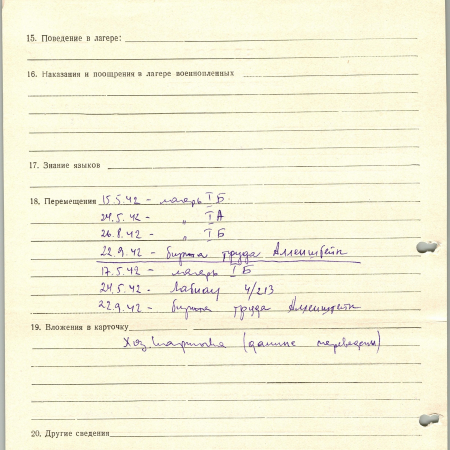 15. Поведение в лагере:
16. Наказания и поощрения в лагере военнопленных
17. Знание языков
18. Перемещения 15.5.42 - лагерь I Б.
24.5.42 - " I А
26.8.42 - " I Б
22.9.42 - биржа труда Алленштейн
17.5.42 - лагерь I Б
24.5.42 - Лабиау 4/213
22.9.42 - биржа труда Алленштейн
19. Вложения в карточку
(данные переведены)
20. Другие сведения